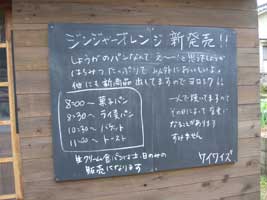 ジンジャーオレンジ 新発売!!
しょうがのパンなんて え〜!と思うでしょうが
はちみつたっぷりで 以外においしいよ。
他にも新商品出してますのでヨロシク!!
8:00〜菓子パン
9:30〜ライ麦パン
10:30〜バゲット
11:00〜トースト
一人で焼いてますので
その日によって変更に
なることがあります
すみません
生クリーム食パンは土・日のみの
販売になります
ワイワイズ